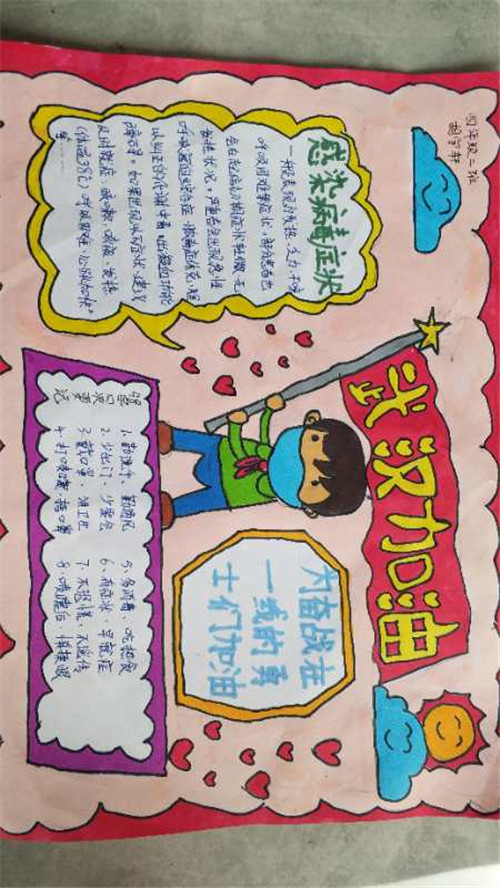 四年级二班
武汉加油
感染病毒症状
一般表现为发热、乏力、干咳
呼吸困难等症状,部分患者也
会在起病初期症状轻微,无
发热状况。严重者会出现急性
呼吸窘迫综合征、脓毒症休克、难
以纠正的代谢酸中毒、出凝血功能
障碍。如果出现状况症状,建议
及时就症 咳嗽、咳痰、发热
(体温38℃)呼吸困难、心跳加快
等
为奋战在
一线的勇
士们加油
口诀要记
1.勤洗手、勤通风 5、多消毒、吃熟食
2.少出门、少聚会 6、有症状、早就症
3.戴口罩、讲卫生 7、不恐慌、不谣传
4.打喷嚏、捂口鼻 8、